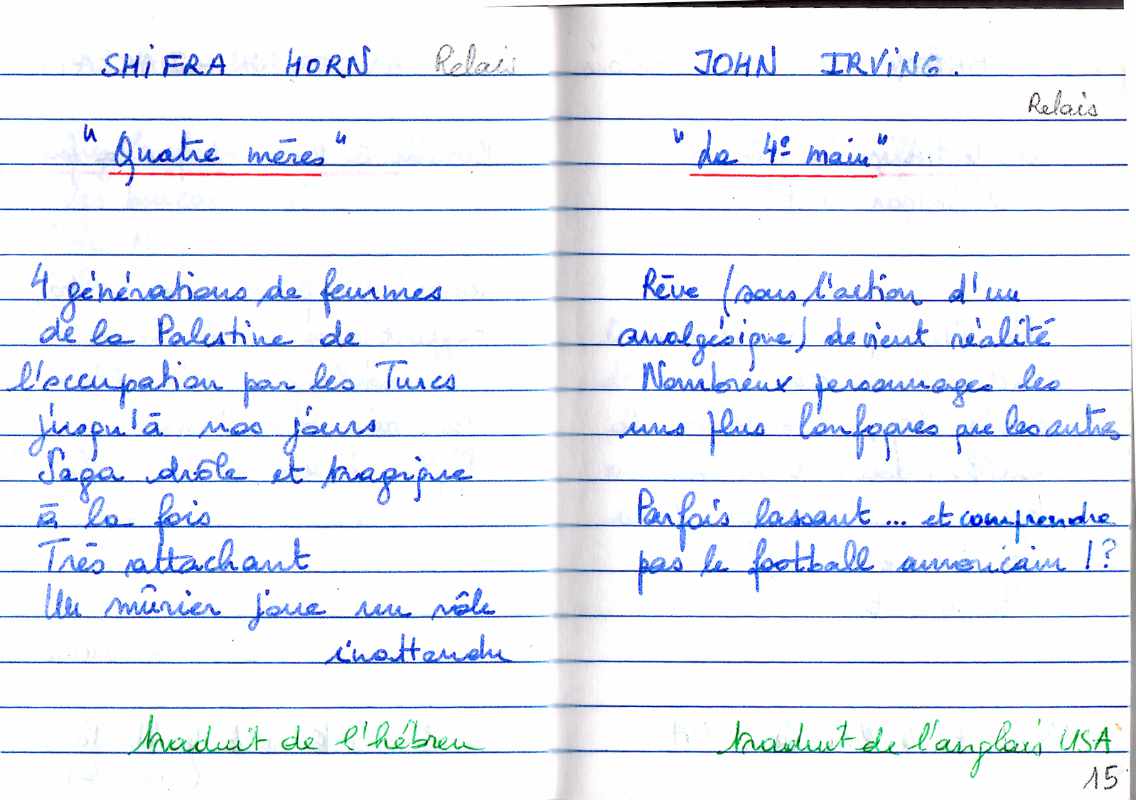 SHIFRA HORN Relais
"Quatre mères"
4 générations de femmes
de la Palestine de
l'occupation par les Turcs
jusqu'à nos jours
Saga drôle et tragique
à la fois
Très attachant
Un mûrier joue un rôle
inattendu
traduit de l'hébreu
JOHN IRVING.
Relais
"La 4e main"
Rêve (sous l'action d'un
analgésique) devient réalité
Nombreux personnages les
uns plus loufoques que les autres
Parfois lassant ... et comprendre
pas le football américain !?
traduit de l'anglais USA
15